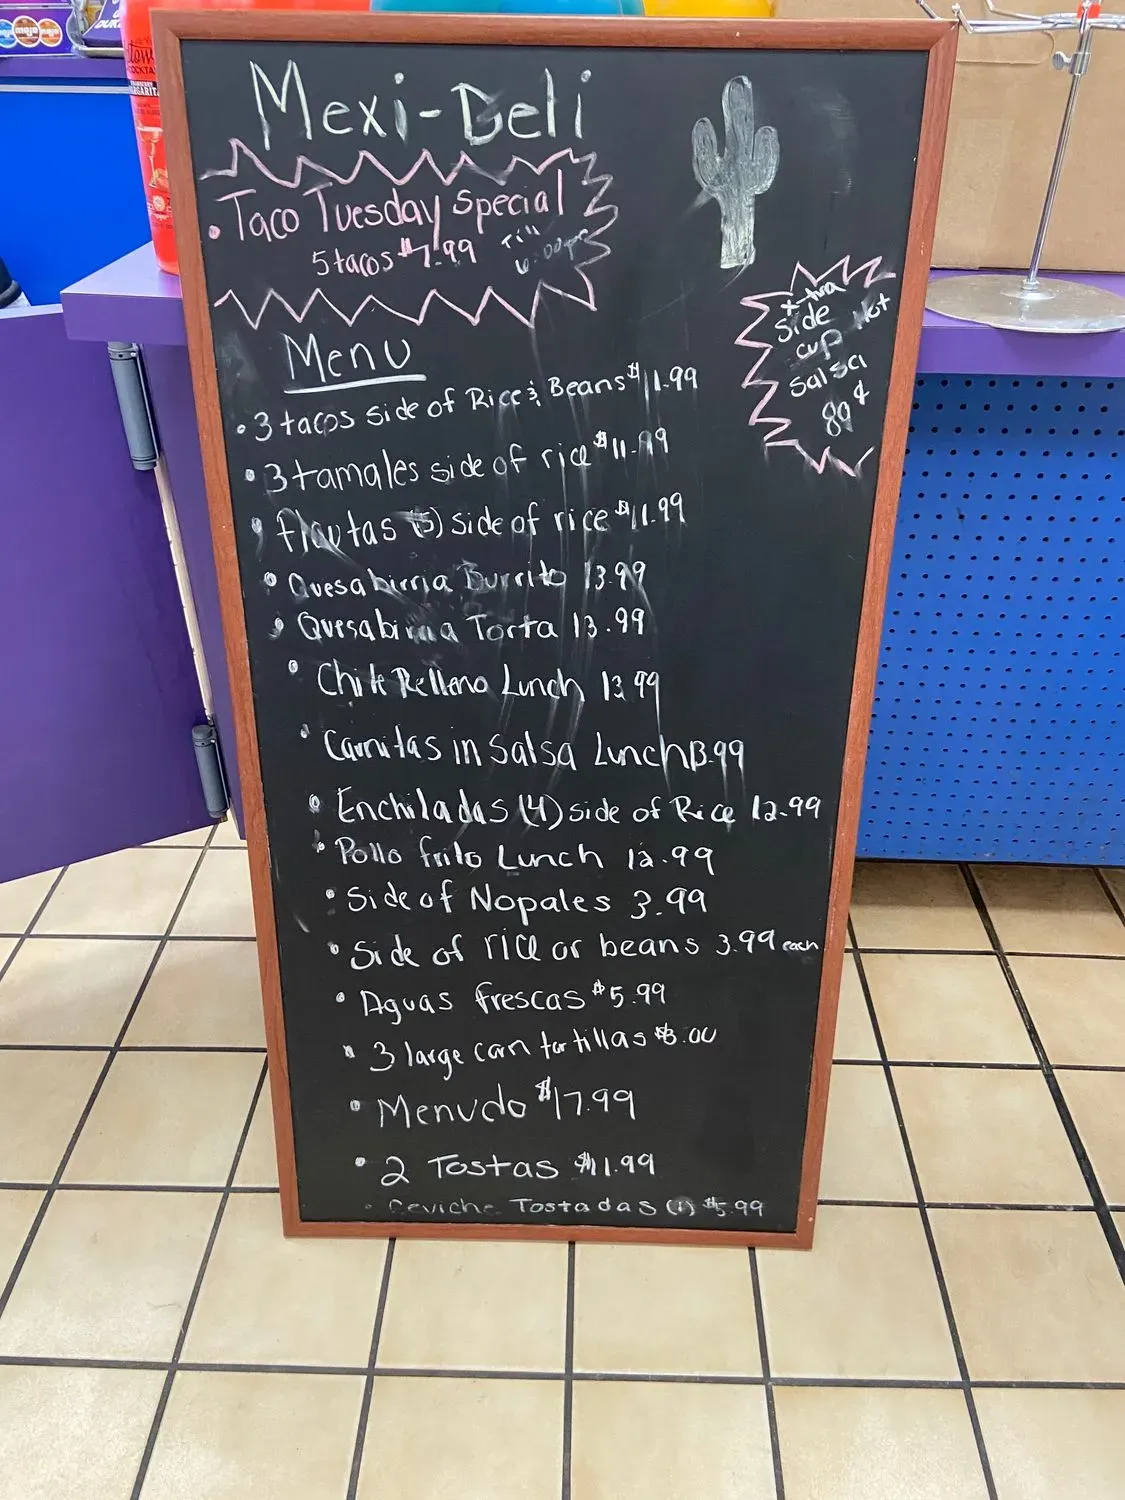 Mexi-Deli
• Taco Tuesday Special
5 tacos $7.99 Till 6:00pm
x-tra
Side
cup Hot
Salsa
89¢
Menu
• 3 tacos side of Rice & Beans $11.99
• 3 tamales side of rice $11.99
• flautas (5) side of rice $11.99
• Quesabirria Burrito 13.99
• Quesabirria Torta 13.99
• Chile Relleno Lunch 13.99
• Carnitas in Salsa Lunch 13.99
• Enchiladas (4) side of Rice 12.99
• Pollo frito Lunch 12.99
• Side of Nopales 3.99
• Side of rice or beans 3.99 each
• Aguas frescas $5.99
• 3 large corn tortillas $3.00
• Menudo $17.99
• 2 Tostas $11.99
• Ceviche Tostadas (1) $5.99